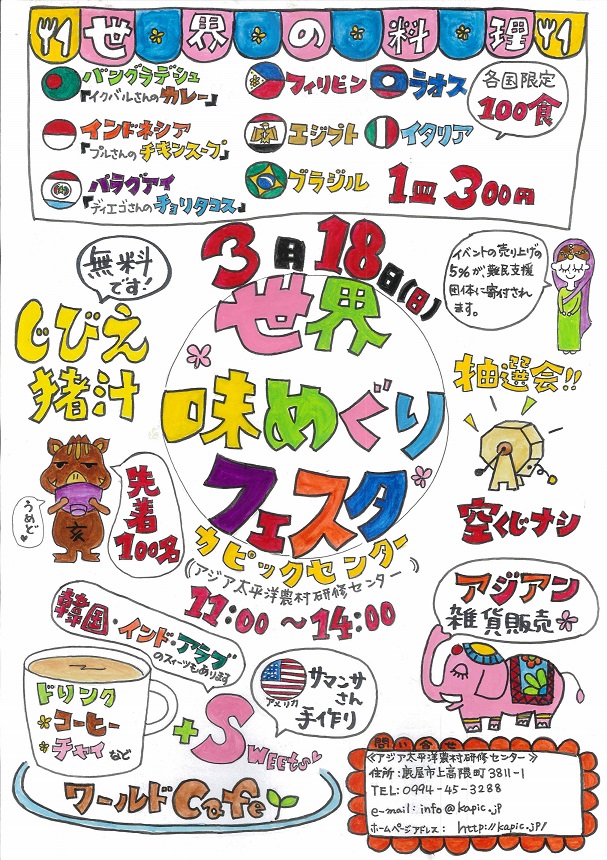 世界の料理
バングラデシュ
『イクバルさんのカレー』
フィリピン
ラオス
各国限定
100食
インドネシア
『プルさんのチキンスープ』
エジプト
イタリア
パラグアイ
『ディエゴさんのチョリタコス』
ブラジル
1皿300円
3月18日(日)
世界
味めぐり
フェスタ
無料
です!
じびえ
猪汁
先着
100名
うめど♥
亥
イベントの売り上げの
5%が、難民支援
団体に寄付され
ます。
抽選会!!
空くじナシ
カピックセンター
《アジア太平洋農村研修センター》
11:00〜14:00
韓国・インド・アラブ
のスイーツもあり〼
ドリンク
コーヒー
チャイ など
+ Sweets
アメリカ
サマンサ
さん
手作り
ワールドCafe
アジアン
雑貨販売
問い合せ
《アジア太平洋農村研修センター》
住所:鹿屋市上高隈町3811-1
TEL:0994-45-3288
e-mail:info@kapic.jp
ホームページアドレス: http://kapic.jp/